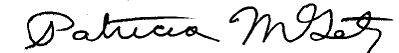 Patricia McGetz